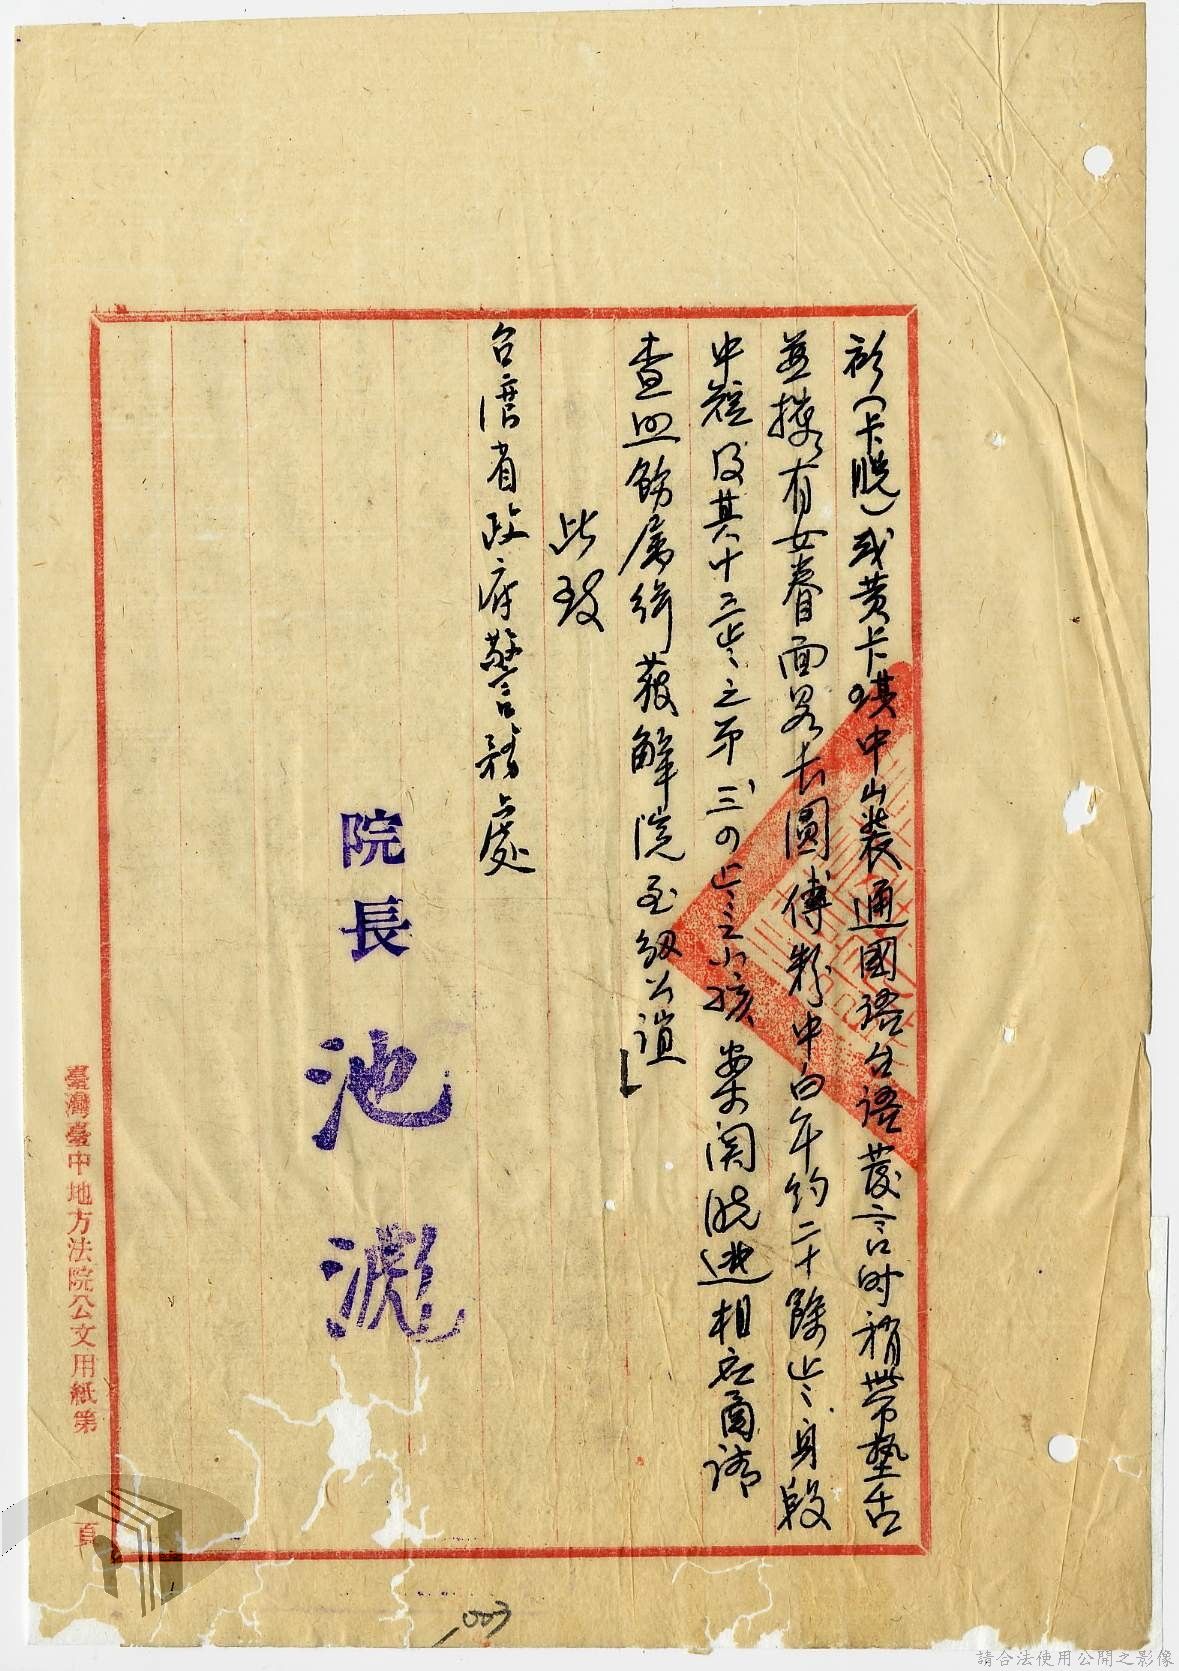 衫(卡㬠)或黃卡琪中山裝通國語台語發言時稍帶墊舌
並攜有女眷面畧長圓傅粉中白年約二十餘歲身段
中短及其十三歲之弟三四歲之小孩案関脫逃相应函請
查照飭屬緝获解院至紉公誼」
此致
台湾省政府警務處
院長 池
臺灣臺中地方法院公文用紙第 頁
007
請合法使用公開之影像